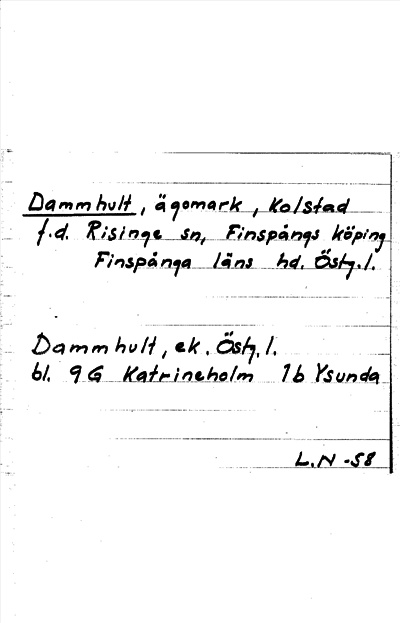 Dammhult, ägomark, Kolstad
f.d. Risinge sn, Finspångs köping
Finspånga läns hd. Östg.l.
Dammhult, ek. Östg.l.
bl. 9G Katrineholm 1b Ysunda
L.N -58